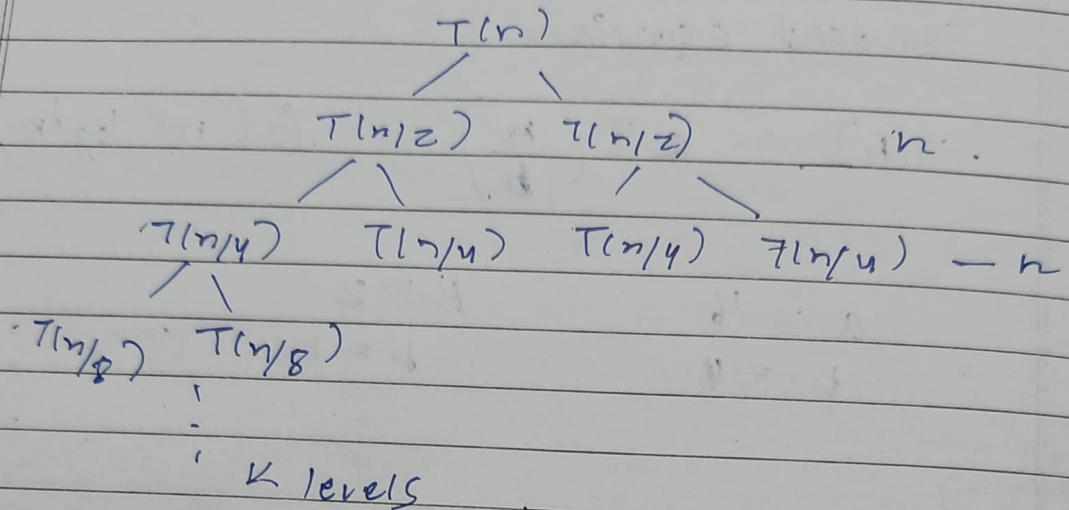 T(n)
T(n/2) T(n/2) n.
T(n/4) T(n/4) T(n/4) T(n/4) — n
T(n/8) T(n/8)
K levels